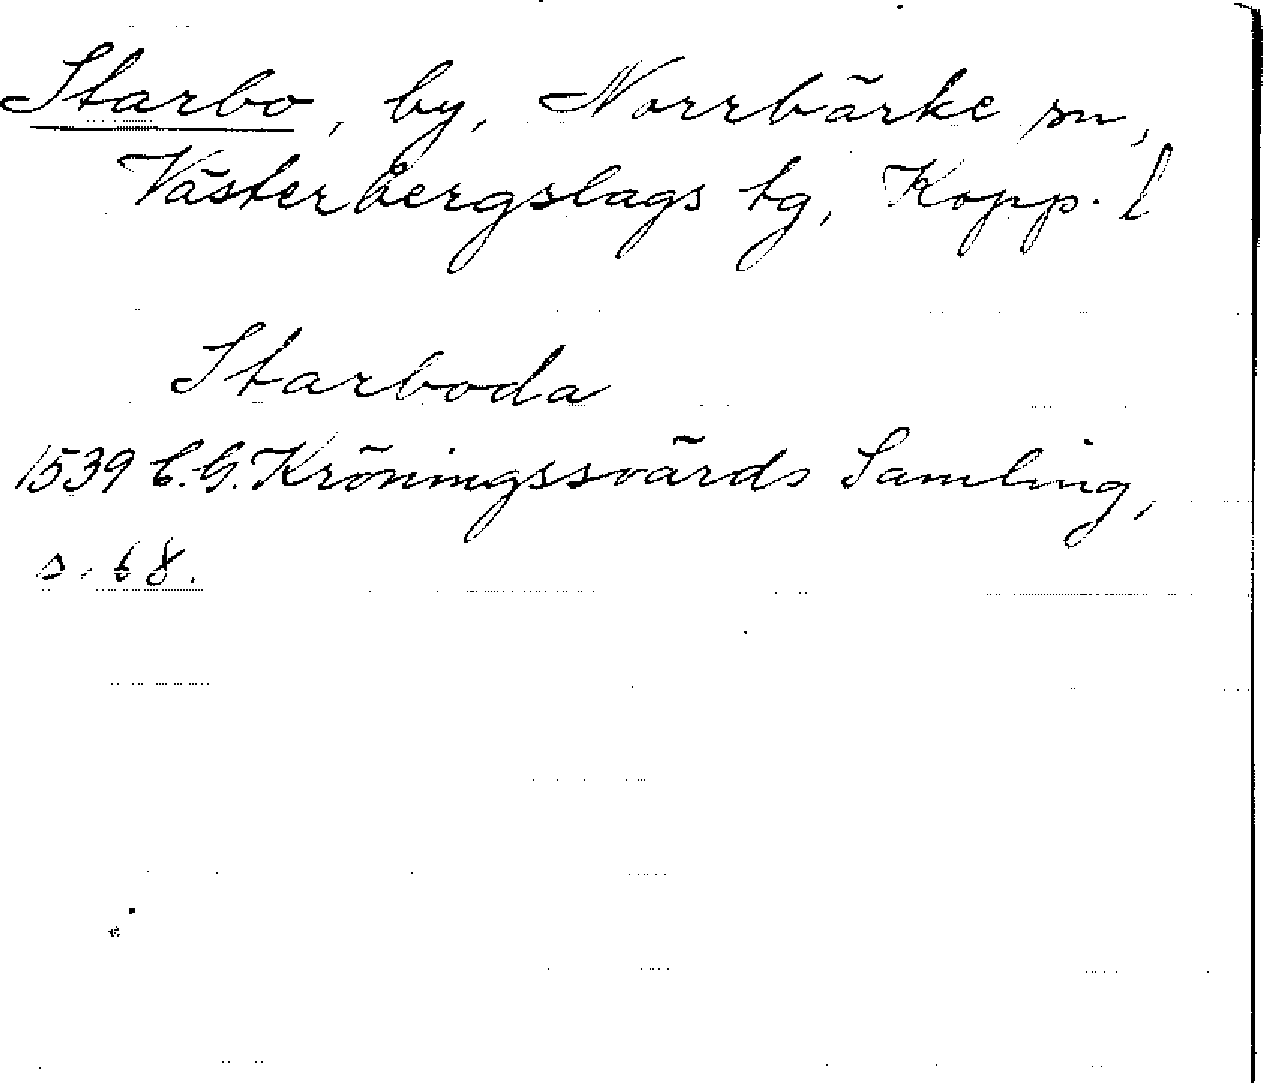 Starbo, by, Norrbärke sn,
Västerbergslags tg, Kopp. l
Starboda
1539 C.G. Kröningssvärds Samling,
s. 68.